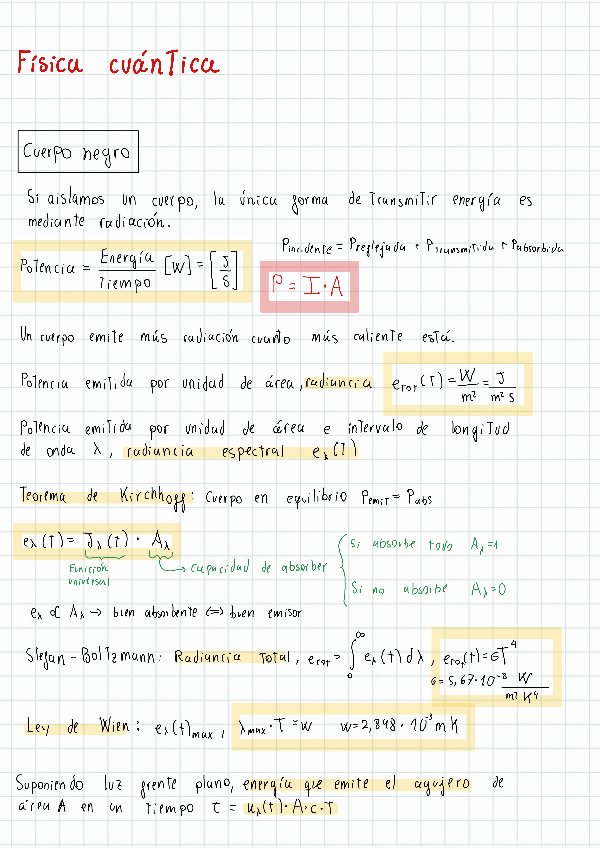 Física cuántica
Cuerpo negro
Si aislamos un cuerpo, la única forma de transmitir energía es
mediante radiación.
Pincidente = Preflejada + Ptransmitida + Pabsorbida
Potencia = Energía / Tiempo [W] = [J / S]
P = I · A
Un cuerpo emite más radiación cuanto más caliente está.
Potencia emitida por unidad de área, radiancia e_tot(T) = W / m² = J / m² s
Potencia emitida por unidad de área e intervalo de longitud
de onda λ, radiancia espectral e_λ(T)
Teorema de Kirchhoff: Cuerpo en equilibrio P_emit = P_abs
e_λ(t) = J_λ(t) · A_λ
Función
universal
capacidad de absorber
Si absorbe todo A_λ=1
Si no absorbe A_λ=0
e_λ ∝ A_λ → buen absorbente ⟺ buen emisor
Stefan-Boltzmann: Radiancia total, e_tot = ∫₀^∞ e_λ(t) dλ, e_tot(t) = σT⁴
σ = 5,67·10⁻⁸ W / m² K⁴
Ley de Wien: e_λ(t)_max, λ_max · T = w w = 2,898 · 10⁻³ m K
Suponiendo luz frente plano, energía que emite el agujero de
área A en un tiempo τ = u_λ(t)·A·c·T